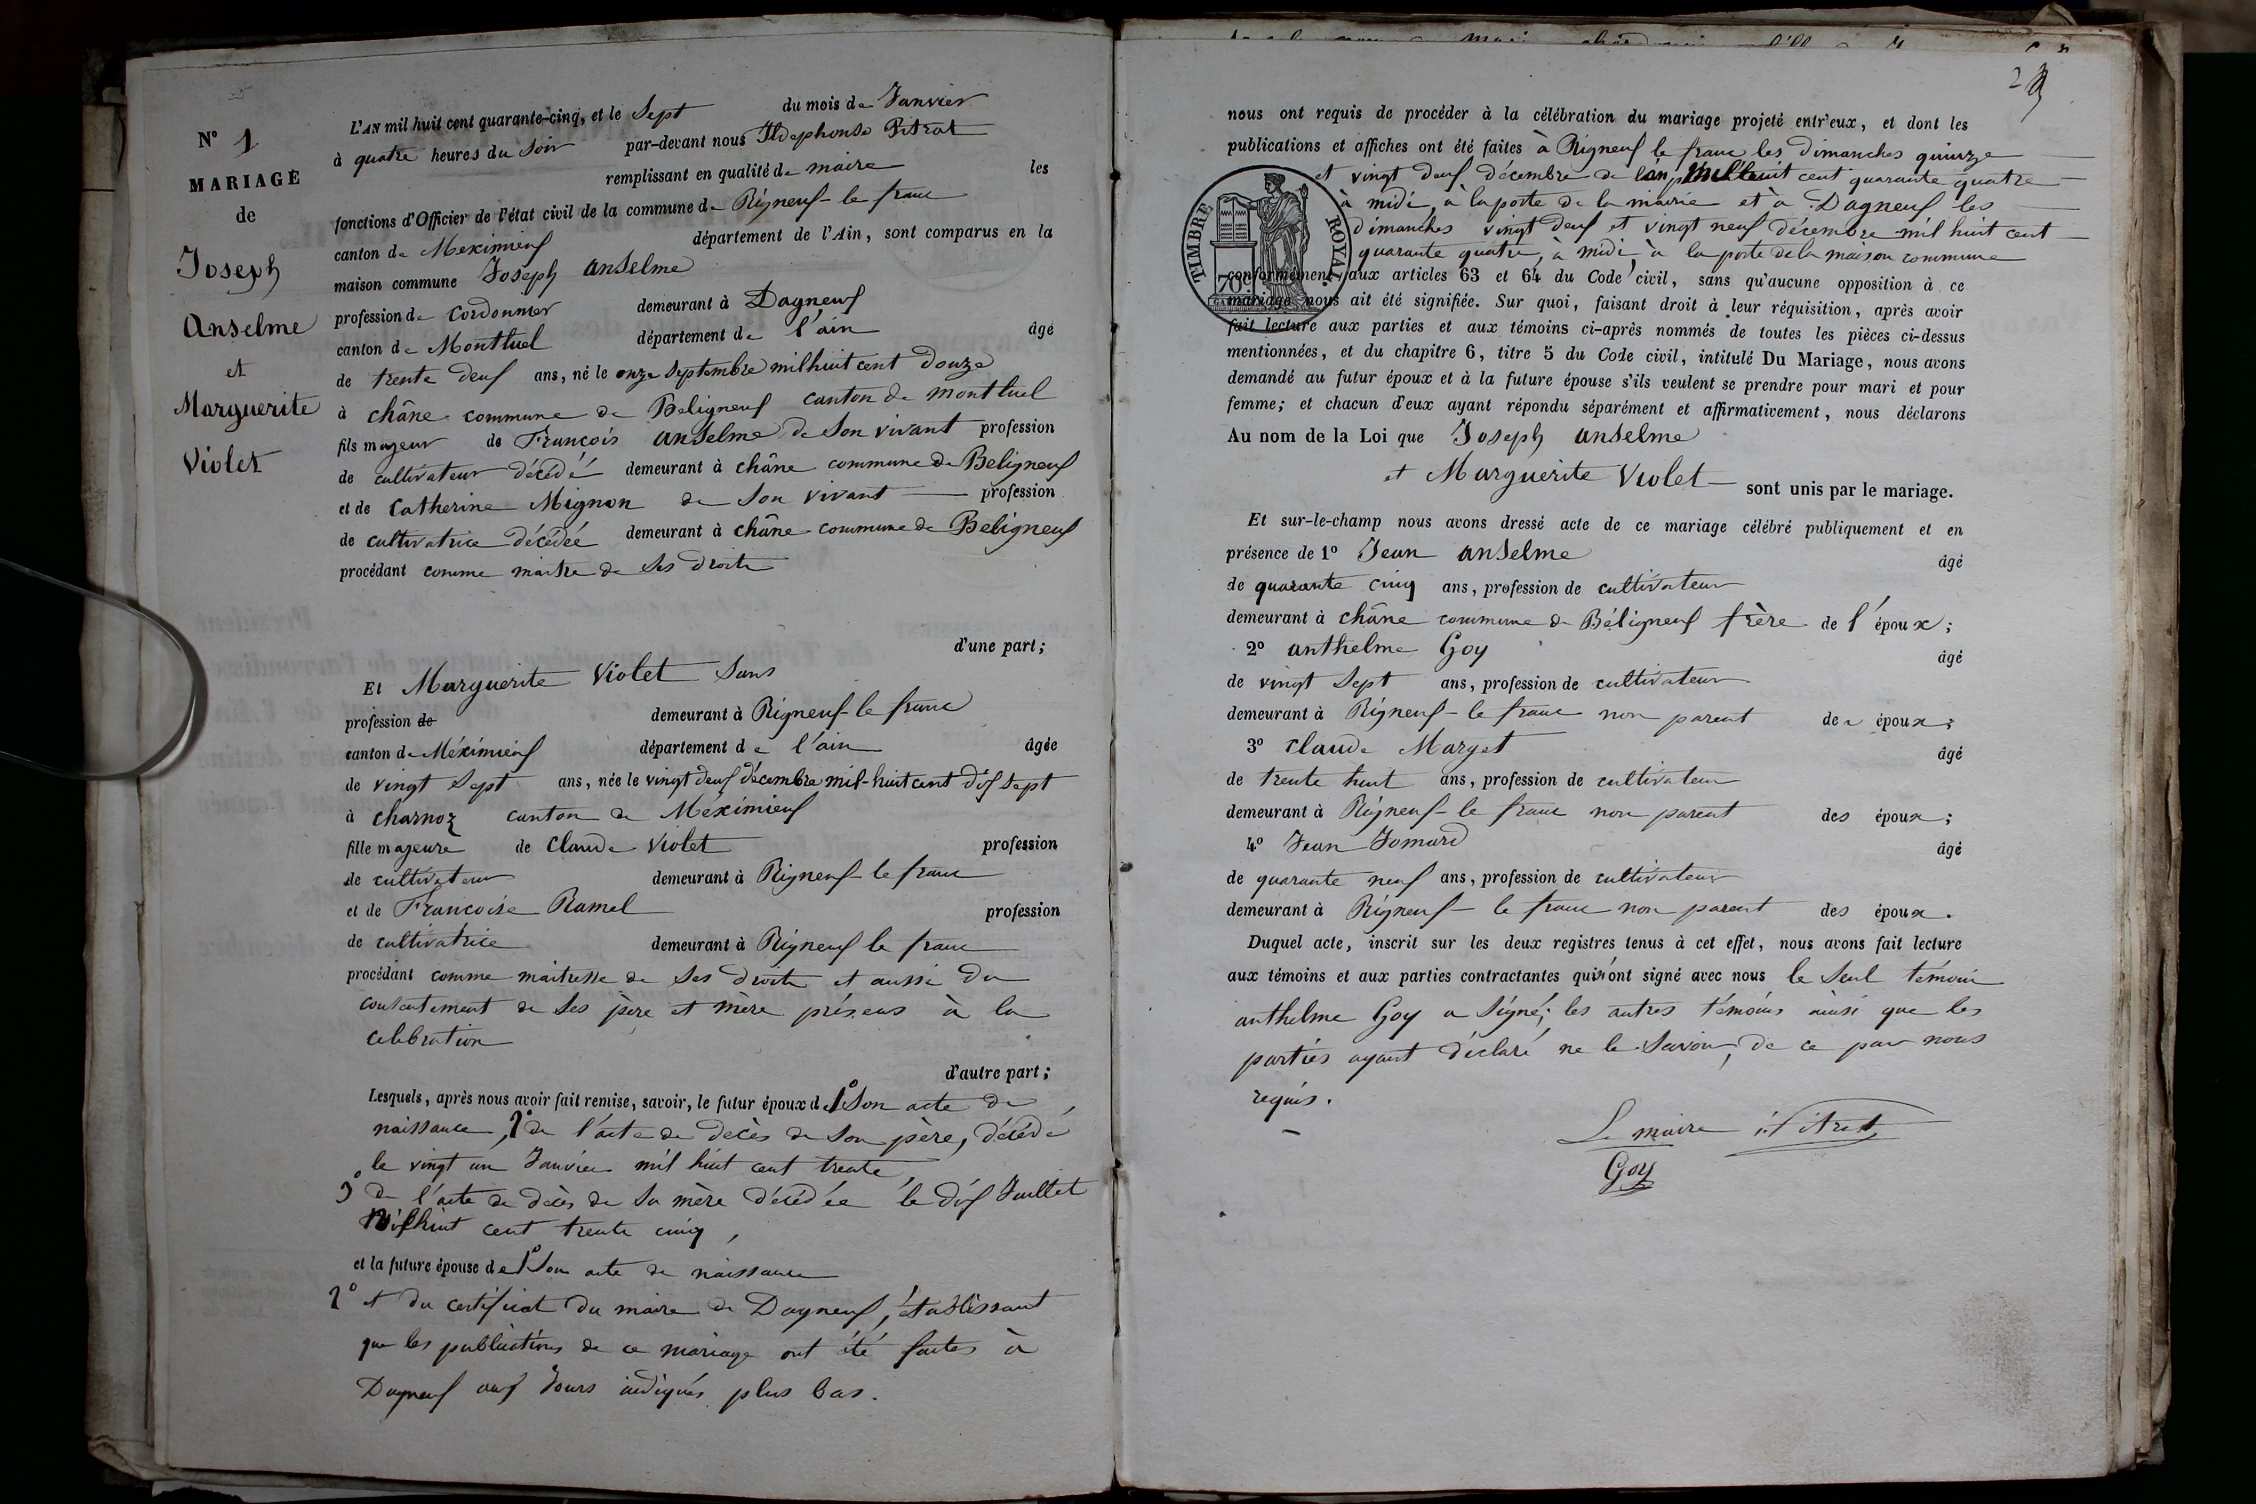 N° 1
MARIAGE
de
Joseph
Anselme
et
Marguerite
Violet
L'AN mil huit cent quarante-cinq, et le Sept du mois de Janvier
à quatre heures du Soir par-devant nous Ildephonse Pitrat
remplissant en qualité de maire les
fonctions d'Officier de l'état civil de la commune de Rigneux-le franc
canton de Meximieux département de l'Ain, sont comparus en la
maison commune Joseph anselme
profession de cordonnier demeurant à Dagneux
canton de Montluel département de l'ain âgé
de trente deux ans, né le onze septembre mil huit cent douze
à châne commune de Beligneux canton de montluel
fils majeur de François anselme de Son vivant profession
de cultivateur décédé demeurant à châne commune de Beligneux
et de Catherine Mignon de Son vivant profession
de cultivatrice décédée demeurant à châne commune de Beligneux
procédant comme maitre de Ses droits
d'une part;
Et Marguerite Violet Sans
profession de demeurant à Rigneux-le franc
canton de Méximieux département de l'ain âgée
de vingt Sept ans, née le vingt deux décembre mil-huit cent dix sept
à charnoz canton de Méximieux
fille majeure de Claude Violet profession
de cultivateur demeurant à Rigneux le franc
et de Francoise Ramel profession
de cultivatrice demeurant à Rigneux le franc
procédant comme maitresse de Ses droits et aussi du
consentement de Ses père et mère présens à la
celebration
d'autre part;
Lesquels, après nous avoir fait remise, savoir, le futur époux de 1° Son acte de
naissance, 2° de l'acte de decès de Son père, décédé
le vingt un Janvier mil huit cent trente
3° de l'acte de decès de Sa mère décédée le dix Juillet
Mil huit cent trente cinq,
et la future épouse de 1° Son acte de naissance
2° et du certificat du maire de Dagneux, établissant
que les publications de ce mariage ont été faites à
Dagneux aux Jours indiqués plus bas.
nous ont requis de procéder à la célébration du mariage projeté entr'eux, et dont les
publications et affiches ont été faites à Rigneux le franc les dimanches quinze
et vingt deux décembre de l'an Mil huit cent quarante quatre
à midi, à la porte de la mairie et à Dagneux les
dimanches vingt deux et vingt neuf décembre mil huit cent
quarante quatre, à midi à la porte de la maison commune
TIMBRE ROYAL
70c
conformément aux articles 63 et 64 du Code civil, sans qu'aucune opposition à ce
mariage nous ait été signifiée. Sur quoi, faisant droit à leur réquisition, après avoir
fait lecture aux parties et aux témoins ci-après nommés de toutes les pièces ci-dessus
mentionnées, et du chapitre 6, titre 5 du Code civil, intitulé Du Mariage, nous avons
demandé au futur époux et à la future épouse s'ils veulent se prendre pour mari et pour
femme; et chacun d'eux ayant répondu séparément et affirmativement, nous déclarons
Au nom de la Loi que Joseph anselme
et Marguerite Violet sont unis par le mariage.
Et sur-le-champ nous avons dressé acte de ce mariage célébré publiquement et en
présence de 1° Jean anselme âgé
de quarante cinq ans, profession de cultivateur
demeurant à châne commune de Béligneux frère de l'époux;
2° anthelme Goy âgé
de vingt Sept ans, profession de cultivateur
demeurant à Rigneux-le franc non parent des époux;
3° Claude Marget âgé
de trente huit ans, profession de cultivateur
demeurant à Rigneux-le franc non parent des époux;
4° Jean Jomard âgé
de quarante neuf ans, profession de cultivateur
demeurant à Rigneux-le franc non parent des époux.
Duquel acte, inscrit sur les deux registres tenus à cet effet, nous avons fait lecture
aux témoins et aux parties contractantes qui n'ont signé avec nous le Seul témoin
anthelme Goy a Signé; les autres témoins ainsi que les
parties ayant déclaré ne le Savoir, de ce par nous
requis.
Le maire Pitrat
Goy